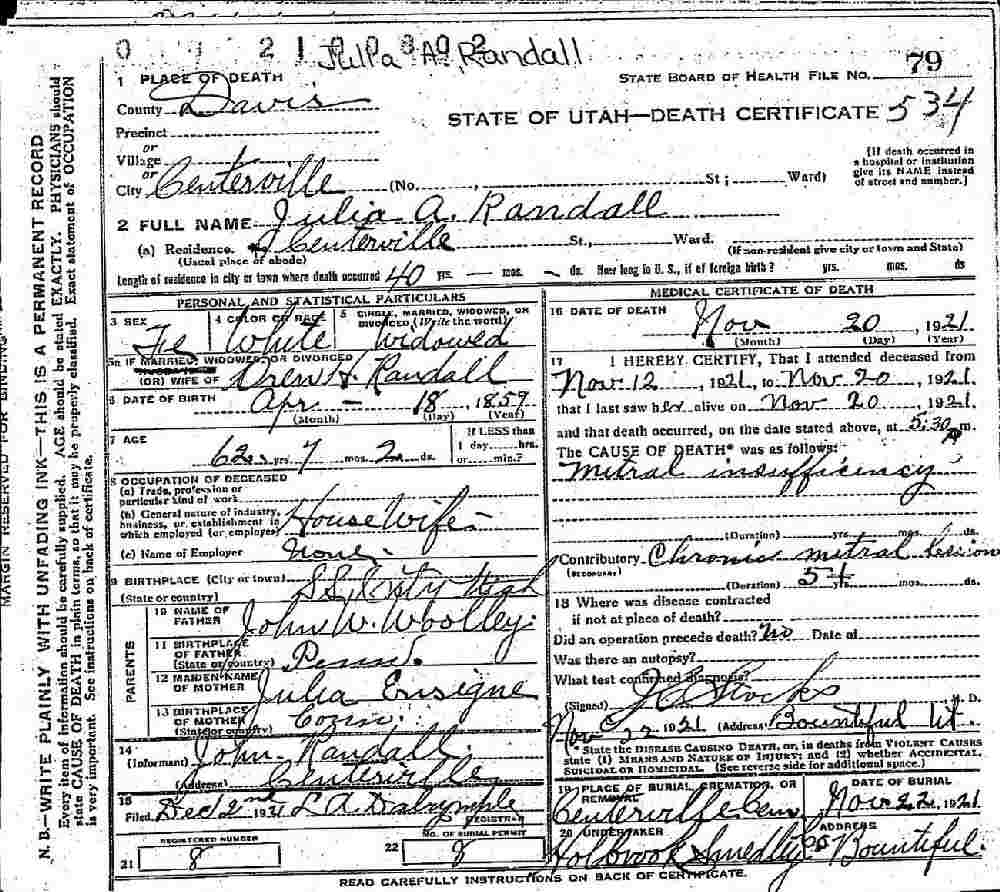 0 9 2 1 0 0 8 0 2
Julia A. Randall
79
STATE BOARD OF HEALTH FILE NO.
STATE OF UTAH—DEATH CERTIFICATE 534
1 PLACE OF DEATH
County Davis
Precinct
or
Village
or
City Centerville (No. , St; Ward)
[If death occurred in a hospital or institution give its NAME instead of street and number.]
2 FULL NAME Julia A. Randall
(a) Residence. Centerville St., Ward. (If non-resident give city or town and State)
(Usual place of abode)
Length of residence in city or town where death occurred 40 yrs. — mos. — ds. How long in U. S., if of foreign birth? yrs. mos. ds
PERSONAL AND STATISTICAL PARTICULARS
3 SEX Fe
4 COLOR OR RACE White
5 SINGLE, MARRIED, WIDOWED, OR DIVORCED (Write the word) Widowed
5a IF MARRIED, WIDOWED, OR DIVORCED
HUSBAND OF
(OR) WIFE OF Oren H. Randall
6 DATE OF BIRTH Apr — 18, 1859
(Month) (Day) (Year)
7 AGE 62 yrs 7 mos. 2 ds.
If LESS than 1 day hrs. or min.?
8 OCCUPATION OF DECEASED
(a) Trade, profession or particular kind of work
(b) General nature of industry, business, or establishment in which employed (or employer) House Wife
(c) Name of Employer None
9 BIRTHPLACE (City or town)
(State or country) S L City Utah
PARENTS
10 NAME OF FATHER John W. Woolley
11 BIRTHPLACE OF FATHER (State or country) Penn.
12 MAIDEN NAME OF MOTHER Julia Ensigne
13 BIRTHPLACE OF MOTHER (State or country) Conn.
14 (Informant) John Randall
(Address) Centerville
15 Filed Dec 2nd 1921 L. A. Dalrymple
REGISTRAR
REGISTERED NUMBER
21 8
NO. OF BURIAL PERMIT
22 8
MEDICAL CERTIFICATE OF DEATH
16 DATE OF DEATH Nov 20, 1921
(Month) (Day) (Year)
17 I HEREBY CERTIFY, That I attended deceased from
Nov. 12, 1921, to Nov 20, 1921
that I last saw her alive on Nov 20, 1921
and that death occurred, on the date stated above, at 5:30 m.
The CAUSE OF DEATH* was as follows:
Mitral insufficiency
(Duration) yrs. mos. ds.
Contributory Chronic mitral lesion
(SECONDARY)
(Duration) 5+ mos. ds.
18 Where was disease contracted
if not at place of death?
Did an operation precede death? No Date of
Was there an autopsy?
What test confirmed diagnosis?
(Signed) J C Stocks M. D.
Nov 22 1921 (Address) Bountiful Ut.
* State the DISEASE CAUSING DEATH, or, in deaths from VIOLENT CAUSES state (1) MEANS AND NATURE OF INJURY; and (2) whether ACCIDENTAL, SUICIDAL OR HOMICIDAL. (See reverse side for additional space.)
19 PLACE OF BURIAL, CREMATION, OR REMOVAL Centerville Cem
DATE OF BURIAL Nov 22, 1921
20 UNDERTAKER Holbrook Smedley Co
ADDRESS Bountiful.
READ CAREFULLY INSTRUCTIONS ON BACK OF CERTIFICATE.
MARGIN RESERVED FOR BINDING
N. B.—WRITE PLAINLY WITH UNFADING INK—THIS IS A PERMANENT RECORD
Every item of information should be carefully supplied. AGE should be stated EXACTLY. PHYSICIANS should
state CAUSE OF DEATH in plain terms, so that it may be properly classified. Exact statement of OCCUPATION
is very important. See instructions on back of certificate.